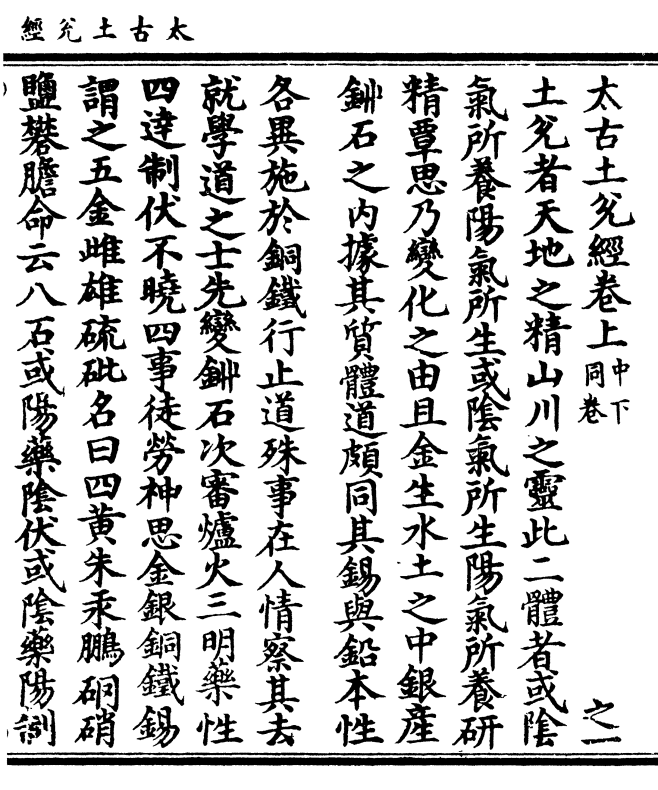 太古土兊經
太古土兊經卷上 中下同卷 之一
土兊者天地之精山川之靈此二體者或陰
氣所養陽氣所生或陰氣所生陽氣所養研
精覃思乃變化之由且金生水土之中銀產
鉚石之內據其質體道頗同其錫與鉛本性
各異施於銅鐵行止道殊事在人情察其去
就學道之士先變鉚石次審爐火三明藥性
四達制伏不曉四事徒勞神思金銀銅鐵錫
謂之五金雌雄硫砒名曰四黃朱汞鵬硇硝
鹽礬膽命云八石或陽藥陰伏或陰藥陽制